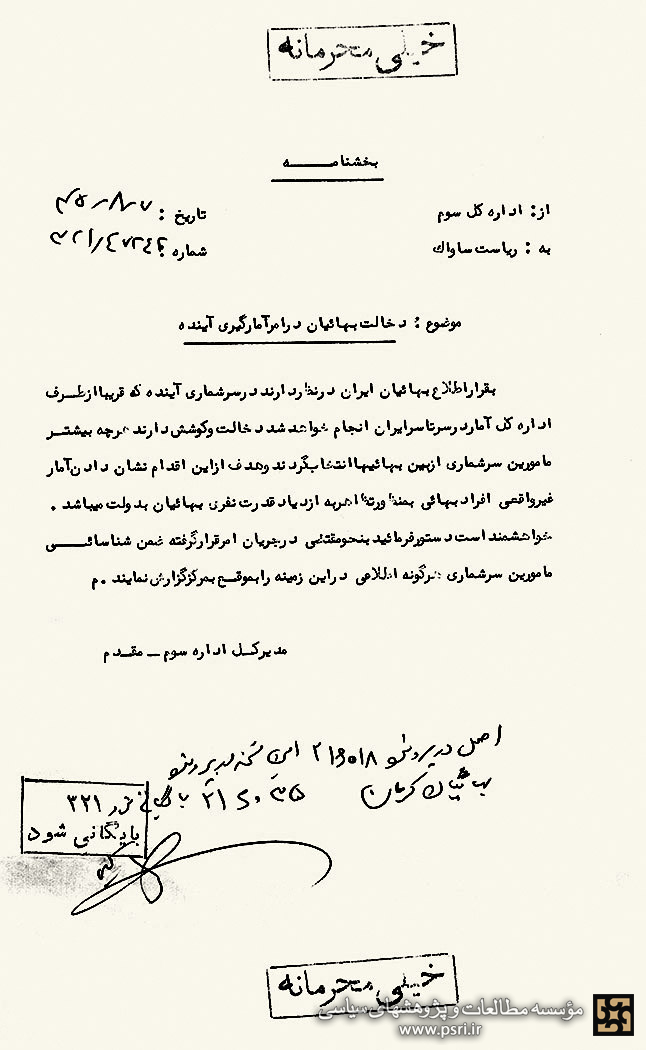 خیلی محرمانه
بخشنامـــــه
از: اداره کل سوم
تاریخ: ۴۵-۸-۷
به: ریاست ساواک
شماره:
موضوع: دخالت بهائیان در امر آمارگیری آینده
بقرار اطلاع بهائیان ایران در نظر دارند در سرشماری آینده که قریبا از طرف
اداره کل آمار در سرتاسر ایران انجام خواهد شد دخالت و کوشش دارند هرچه بیشتر
مامورین سرشماری از بین بهائیها انتخاب گردند و هدف از این اقدام نشان دادن آمار
غیرواقعی افراد بهائی بمنظور تظاهر به ازدیاد قدرت نفری بهائیان بدولت میباشد.
خواهشمند است دستور فرمائید بنحو مقتضی در جریان امر قرار گرفته ضمن شناسائـــی
مامورین سرشماری هرگونه اطلاعی در این زمینه را بموقع بمرکز گزارش نمایند. م
مدیرکل اداره سوم ـ مقدم
اصل در پرونده این نسخه در پرونده
بهائیان کرمان
۳۲۱
بایگانی شود
خیلی محرمانه
مؤسسه مطالعات و پژوهشهای سیاسی
www.psri.ir